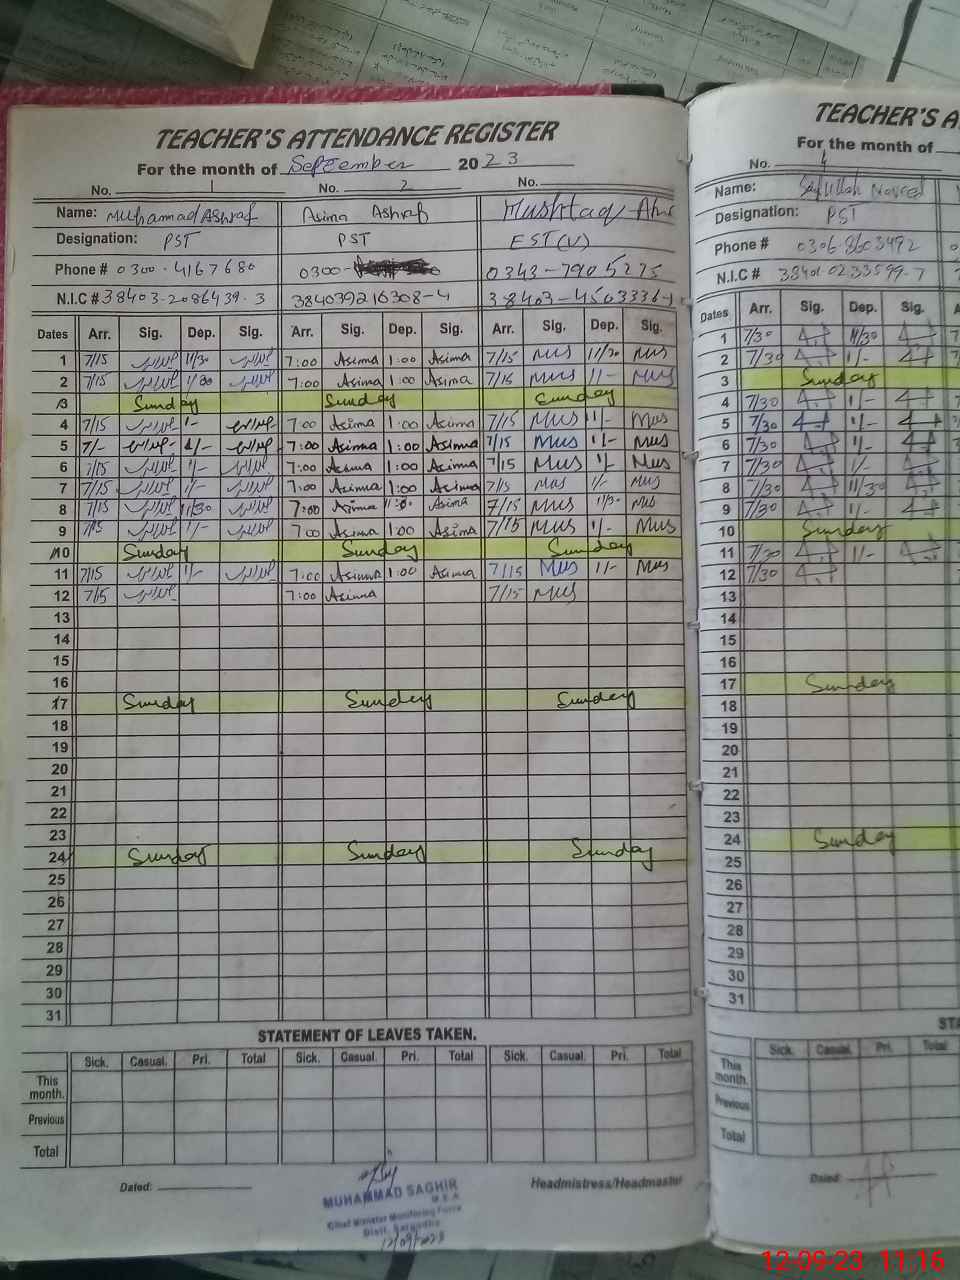 TEACHER'S ATTENDANCE REGISTER
For the month of September 2023
No. 1 No. 2 No.
Name: Muhammad Ashraf Asima Ashraf Mushtaq
Designation: PST PST EST(V)
Phone # 0300-4167680 0300- 0343-7905275
N.I.C # 38403-2086439-3 384039216308-4 38403-4503336-1
Dates Arr. Sig. Dep. Sig. Arr. Sig. Dep. Sig. Arr. Sig. Dep. Sig.
1 7/15 11/30 7:00 Asima 1:00 Asima 7/15 Mus 11/30 Mus
2 7/15 11/30 7:00 Asima 1:00 Asima 7/15 Mus 11/- Mus
3 Sunday Sunday Sunday
4 7/15 1/- 7:00 Asima 1:00 Asima 7/15 Mus 1/- Mus
5 7/- 1/- 7:00 Asima 1:00 Asima 7/15 Mus 1/- Mus
6 7/15 1/- 7:00 Asima 1:00 Asima 7/15 Mus 1/- Mus
7 7/15 1/- 7:00 Asima 1:00 Asima 7/15 Mus 1/- Mus
8 7/15 11/30 7:00 Asima Asima 7/15 Mus 11/30 Mus
9 7/15 1/- 7:00 Asima 1:00 Asima 7/15 Mus 1/- Mus
10 Sunday Sunday Sunday
11 7/15 1/- 7:00 Asima 1:00 Asima 7/15 Mus 1/- Mus
12 7/15 7:00 Asima 7/15 Mus
13
14
15
16
17 Sunday Sunday Sunday
18
19
20
21
22
23
24 Sunday Sunday Sunday
25
26
27
28
29
30
31
STATEMENT OF LEAVES TAKEN.
Sick. Casual. Pri. Total Sick. Casual. Pri. Total Sick. Casual. Pri. Total
This month.
Previous
Total
Dated:
Headmistress/Headmaster
MUHAMMAD SAGHIR
M.E.A
Chief Minister Monitoring Force
Distt. Sargodha
12/09/2023
TEACHER'S A
For the month of
No. 4
Name: Saifullah Naveed
Designation: PST
Phone # 0306-8603492
N.I.C # 38401-0233599-7
Dates Arr. Sig. Dep. Sig. A
1 7/30 11/30
2 7/30 1/-
3 Sunday
4 7/30 1/-
5 7/30 1/-
6 7/30 1/-
7 7/30 1/-
8 7/30 11/30
9 7/30 1/-
10 Sunday
11 7/30 1/-
12 7/30
13
14
15
16
17 Sunday
18
19
20
21
22
23
24 Sunday
25
26
27
28
29
30
31
STA
Sick. Casual. Pri. Total
This month.
Previous
Total
Dated:
12-09-23 11:16